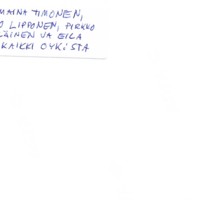 MAINA TIMONEN,
O LIPPONEN, PIRKKO
ÄINEN JA EILA
KAIKKI OYK:STA